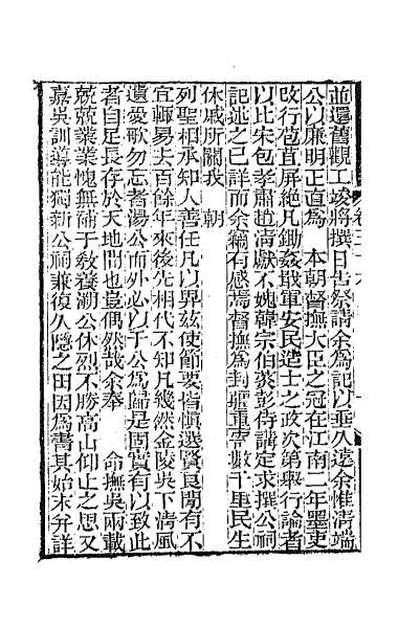 並還舊觀工竣將撰日告祭請余為記以垂久遠余惟清端
公以廉明正直為　本朝督撫大臣之冠在江南二年墨吏
改行苞苴屏絕凡鋤姦戢軍安民造士之政次第舉行論者
以比宋包孝肅趙清獻不媿韓宗伯菼彭侍講定求撰公祠
記述之已詳而余竊有感焉督撫為封疆重寄數千里民生
休戚所關我　朝
列聖相承知人善任凡以畀茲使節要皆慎選賢良閒有不
宜輒易去百餘年來後先相代不知凡幾然金陵吳下清風
遺愛歌勿忘者湯公而外必以于公為歸是固實有以致此
者自足長存於天地間也豈偶然哉余奉　命撫吳兩載
兢兢業業愧無補于教養溯公休烈不勝高山仰止之思又
嘉吳訓導能獨新公祠兼復久隱之田因為書其始末并詳